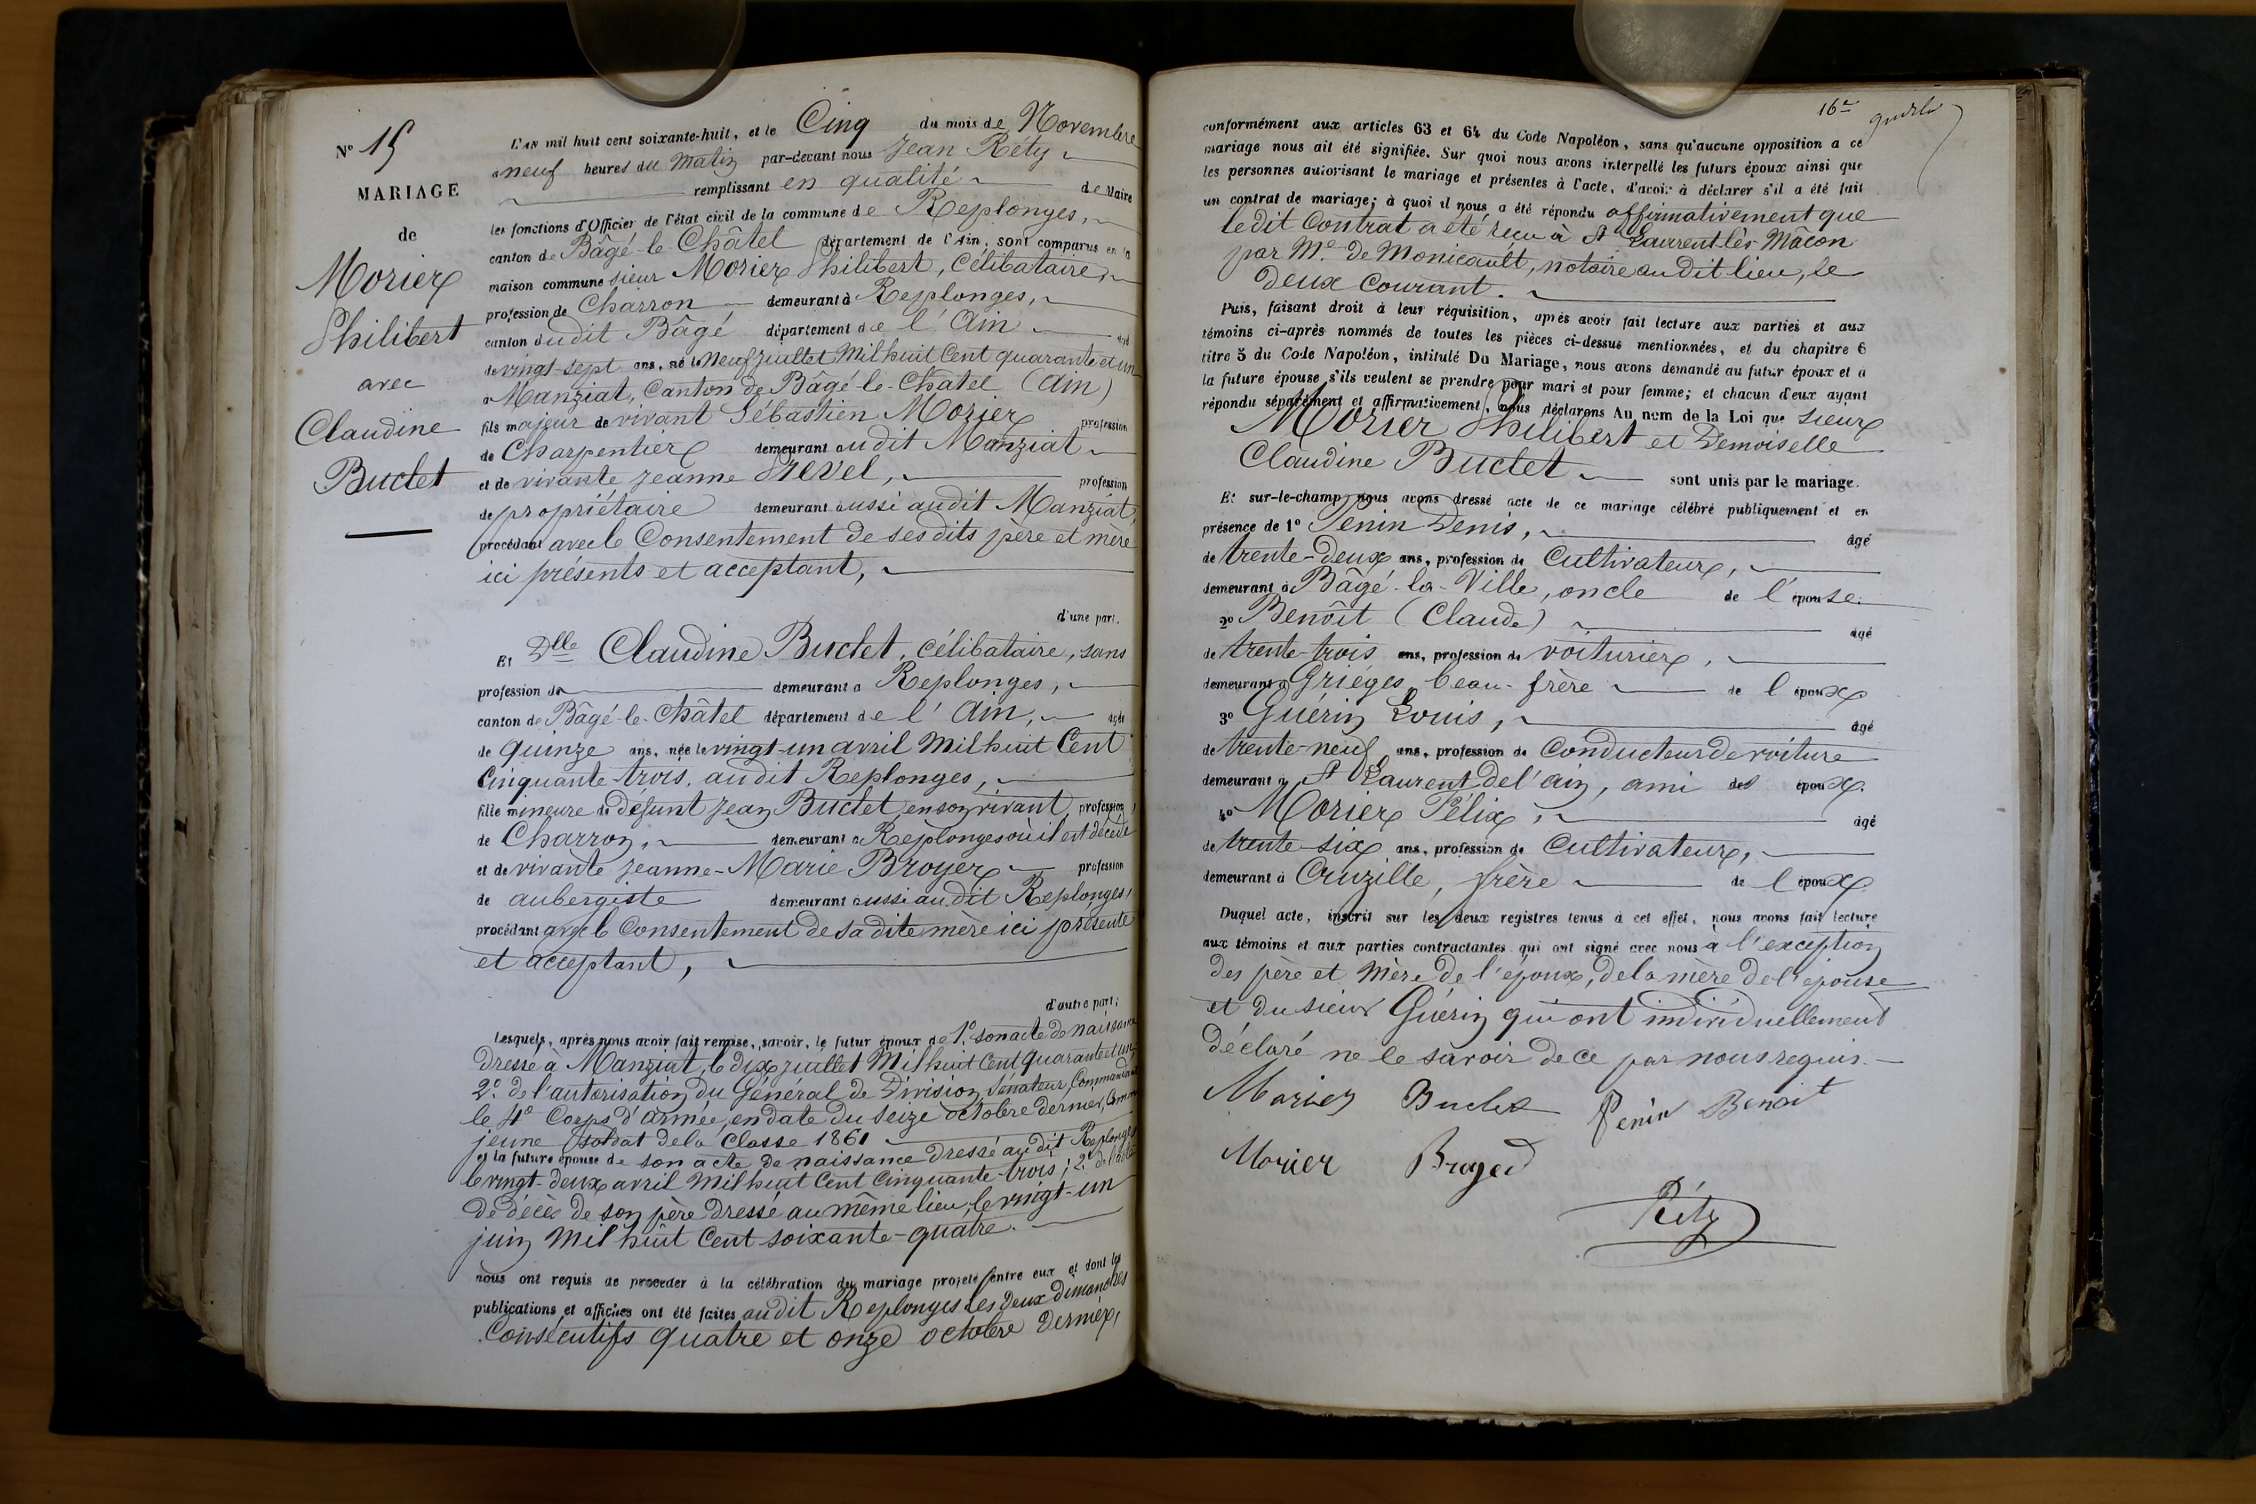 N° 15
MARIAGE
de
Morier
Philibert
avec
Claudine
Buclet
L'an mil huit cent soixante-huit, et le Cinq du mois de Novembre
a neuf heures du matin par-devant nous Jean Réty
remplissant en qualité de Maire
les fonctions d'Officier de l'état civil de la commune de Replonges,
canton de Bâgé-le-Châtel département de l'Ain, sont comparus en la
maison commune sieur Morier Philibert, Célibataire,
profession de Charron demeurant à Replonges,
canton dudit Bâgé département de l'Ain âgé
de vingt-sept ans, né le Neuf juillet Mil huit Cent quarante et un
a Manziat, Canton de Bâgé-le-Chatel (Ain)
fils majeur de vivant Sébastien Morier profession
de Charpentier demeurant audit Manziat
et de vivante Jeanne Prevel, profession
de propriétaire demeurant aussi audit Manziat,
procédant avec le Consentement de ses dits père et mère
ici présents et acceptant,
d'une part.
Et Dlle Claudine Buclet, célibataire, sans
profession de demeurant a Replonges,
canton de Bâgé-le-Châtel département de l'Ain, âgée
de quinze ans, née le vingt-un avril Mil huit Cent
Cinquante-trois, audit Replonges,
fille mineure de défunt Jean Buclet, en son vivant, profession
de Charron, demeurant a Replonges où il est décédé
et de vivante Jeanne-Marie Broyer profession
de aubergiste demeurant aussi audit Replonges,
procédant avec le Consentement de sa dite mère ici présente
et acceptant,
d'autre part;
Lesquels, après nous avoir fait remise, savoir, le futur époux de 1° son acte de naissance
dressé à Manziat, le dix juillet Mil huit Cent quarante et un
2° de l'autorisation du Général de Division, Sénateur, Commandant
le 4e Corps d'armée, en date du seize octobre dernier, Comme
jeune soldat de la Classe 1861
et la future épouse de son acte de naissance dressé audit Replonges
le vingt-deux avril Mil huit Cent Cinquante-trois; 2° de l'acte
de décès de son père dressé au même lieu, le vingt-un
juin Mil huit Cent soixante-quatre.
nous ont requis de proceder à la célébration du mariage projeté entre eux et dont les
publications et affiches ont été faites audit Replonges les deux dimanches
Consécutifs quatre et onze octobre dernier,
16e
conformément aux articles 63 et 64 du Code Napoléon, sans qu'aucune opposition a ce
mariage nous ait été signifiée. Sur quoi nous avons interpellé les futurs époux ainsi que
les personnes autorisant le mariage et présentes à l'acte, d'avoir à déclarer s'il a été fait
un contrat de mariage; à quoi il nous a été répondu affirmativement que
ledit Contrat a été reçu à St Laurent lès Mâcon
par Me de Monicault, notaire audit lieu, le
deux Courant.
Puis, faisant droit à leur réquisition, après avoir fait lecture aux parties et aux
témoins ci-après nommés de toutes les pièces ci-dessus mentionnées, et du chapitre 6
titre 5 du Code Napoléon, intitulé Du Mariage, nous avons demandé au futur époux et a
la future épouse s'ils veulent se prendre pour mari et pour femme; et chacun d'eux ayant
répondu séparément et affirmativement, nous déclarons Au nom de la Loi que sieur
Morier Philibert et Demoiselle
Claudine Buclet sont unis par le mariage.
Et sur-le-champ nous avons dressé acte de ce mariage célébré publiquement et en
présence de 1° Penin Denis, âgé
de trente-deux ans, profession de Cultivateur,
demeurant à Bâgé-la-Ville, oncle de l'épouse.
2° Benoît (Claude) âgé
de trente-trois ans, profession de voiturier,
demeurant a Griéges, beau-frère de l'époux
3° Guérin Louis, âgé
de trente-neuf ans, profession de Conducteur de voiture
demeurant a St Laurent de l'ain, ami des époux.
4° Morier Félix, âgé
de trente-six ans, profession de Cultivateur,
demeurant à Cruzille, frère de l'époux
Duquel acte, inscrit sur les deux registres tenus à cet effet, nous avons fait lecture
aux témoins et aux parties contractantes qui ont signé avec nous à l'exception
des père et mère de l'époux, de la mère de l'épouse
et du sieur Guérin qui ont individuellement
déclaré ne le savoir de ce par nous requis.
Morier Buclet Penin Benoit
Morier Broyer
Réty